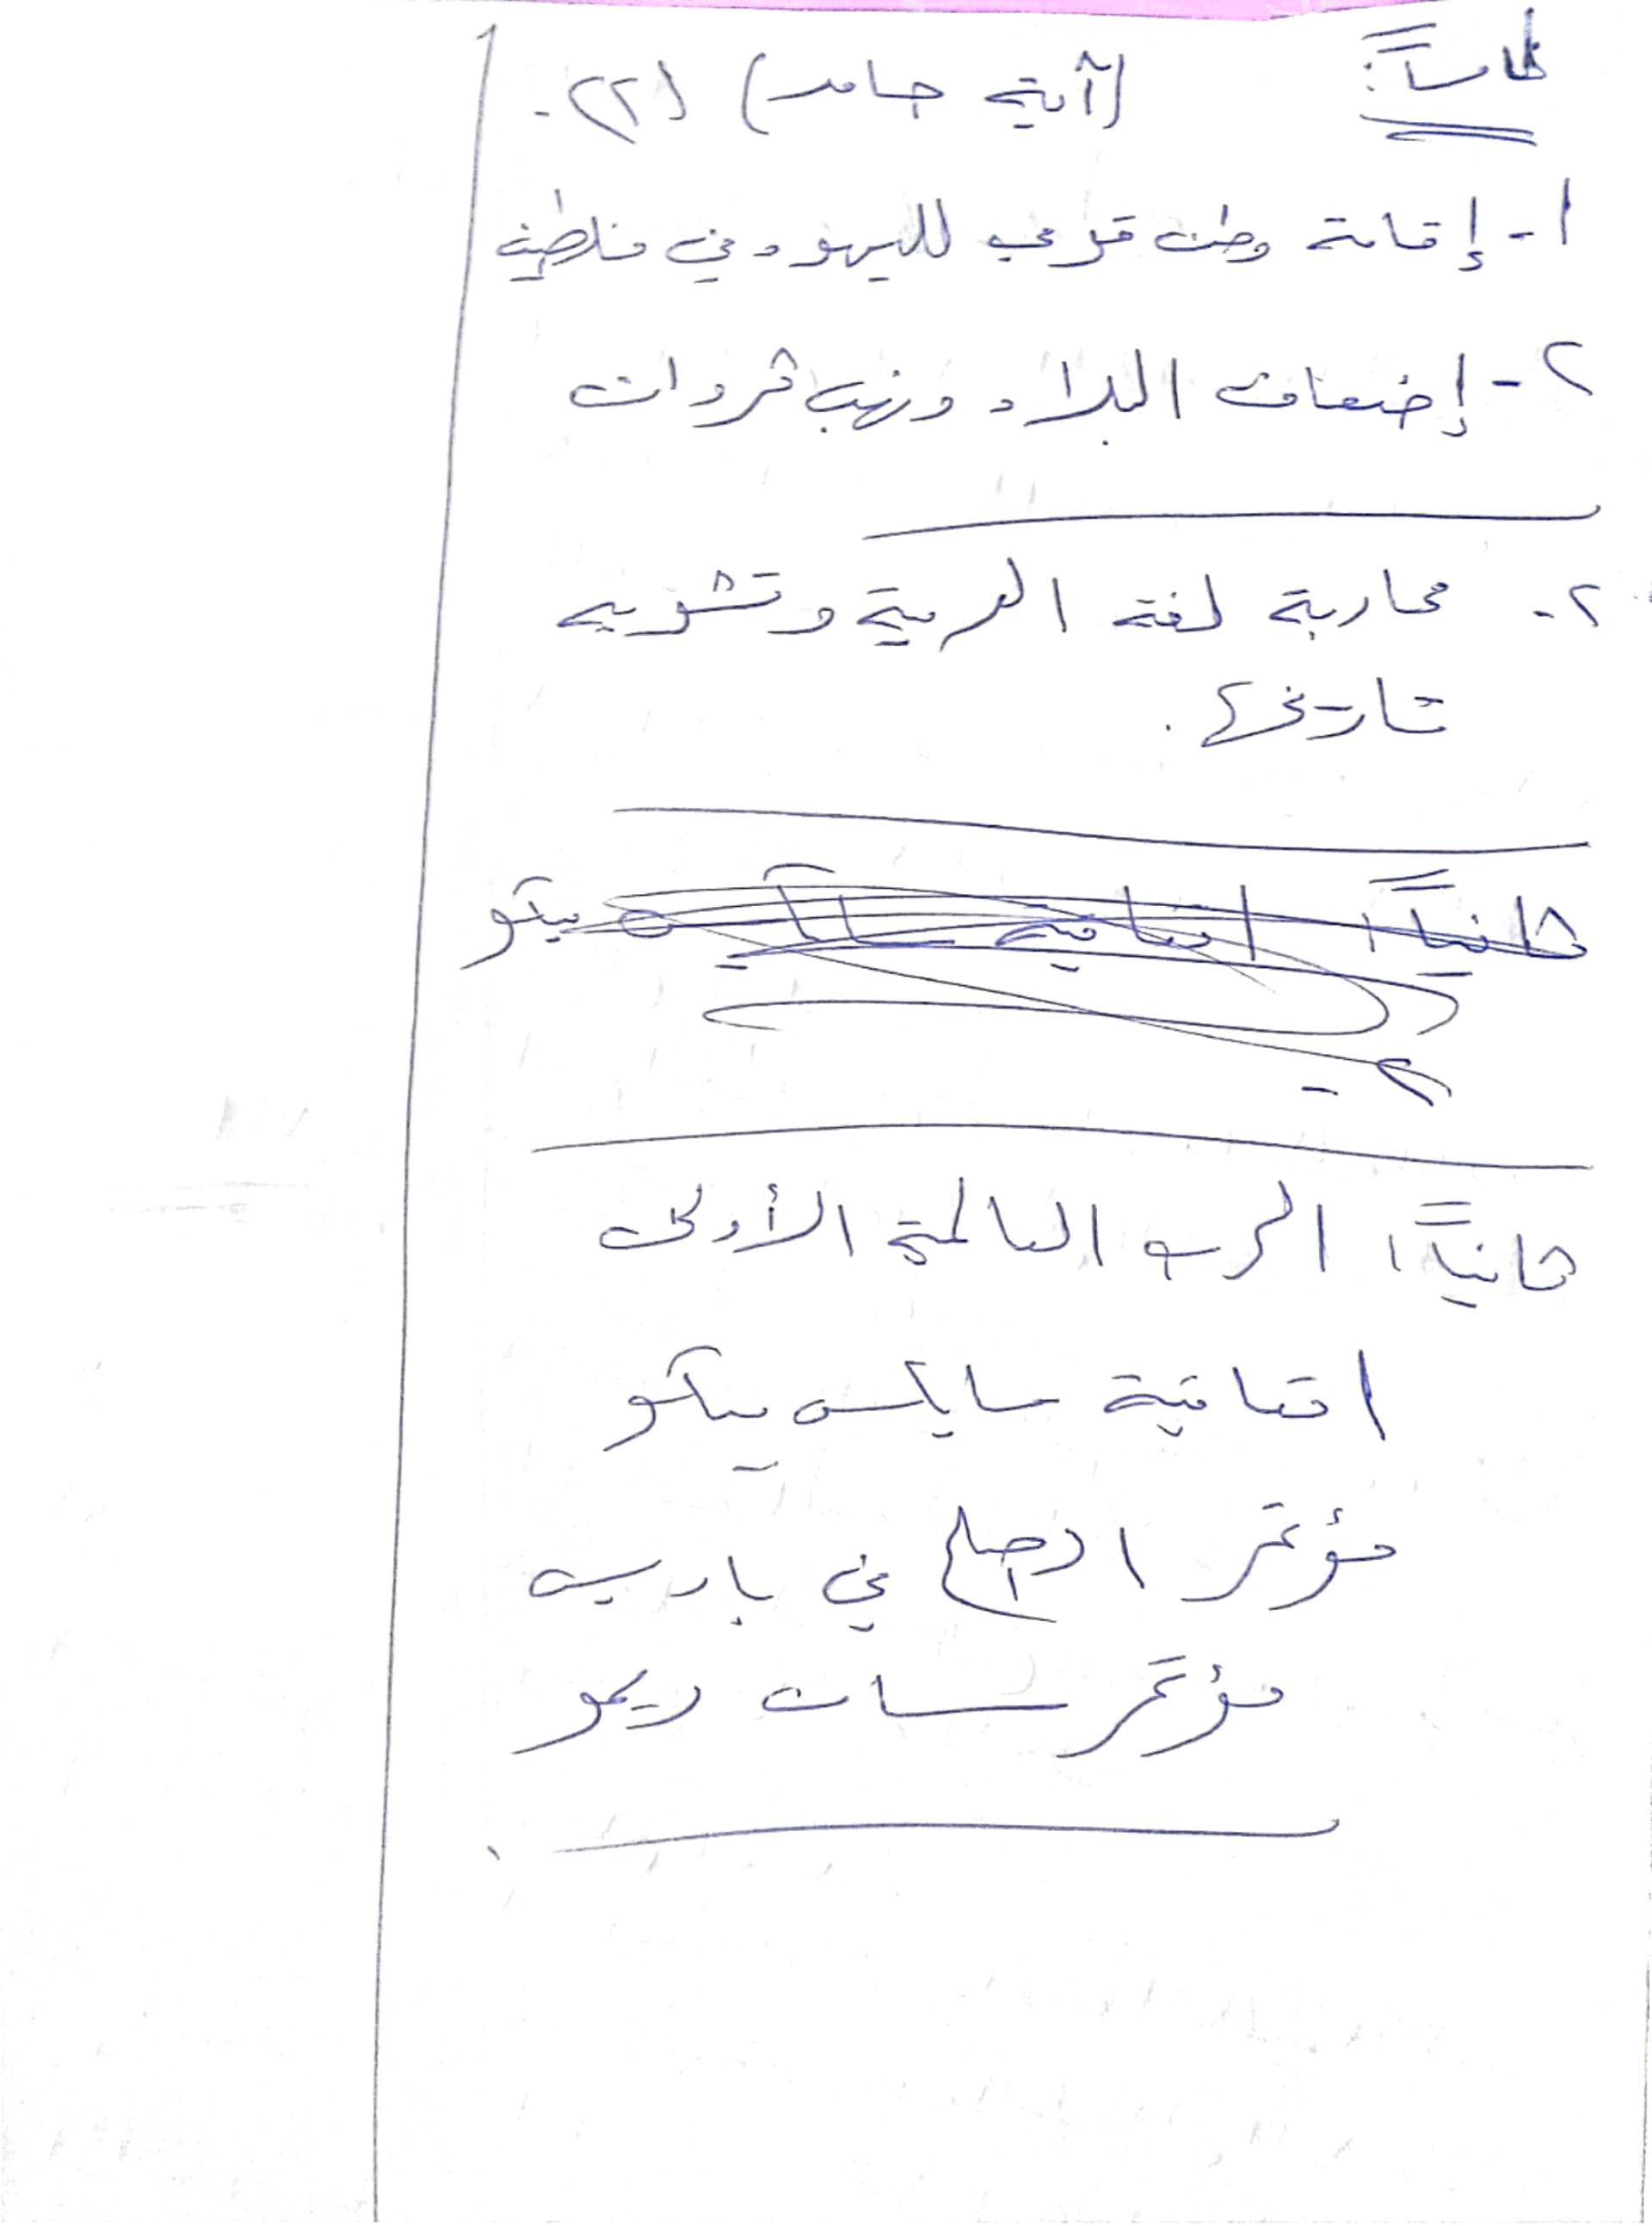 خامساً: (آية حامد) (٢٢ -
١ - إقامة وطن قومي لليهود في فلسطين
٢ - إضعاف البلاد ونهب ثروات
٢ - محاربة لغة العربية وتشويه
تاريخها .
ثانياً: اتفاقية سايكس بيكو
٢ -
ثانياً: الحرب العالمية الأولى
اتفاقية سايكس بيكو
مؤتمر الصلح في باريس
مؤتمر سان ريمو